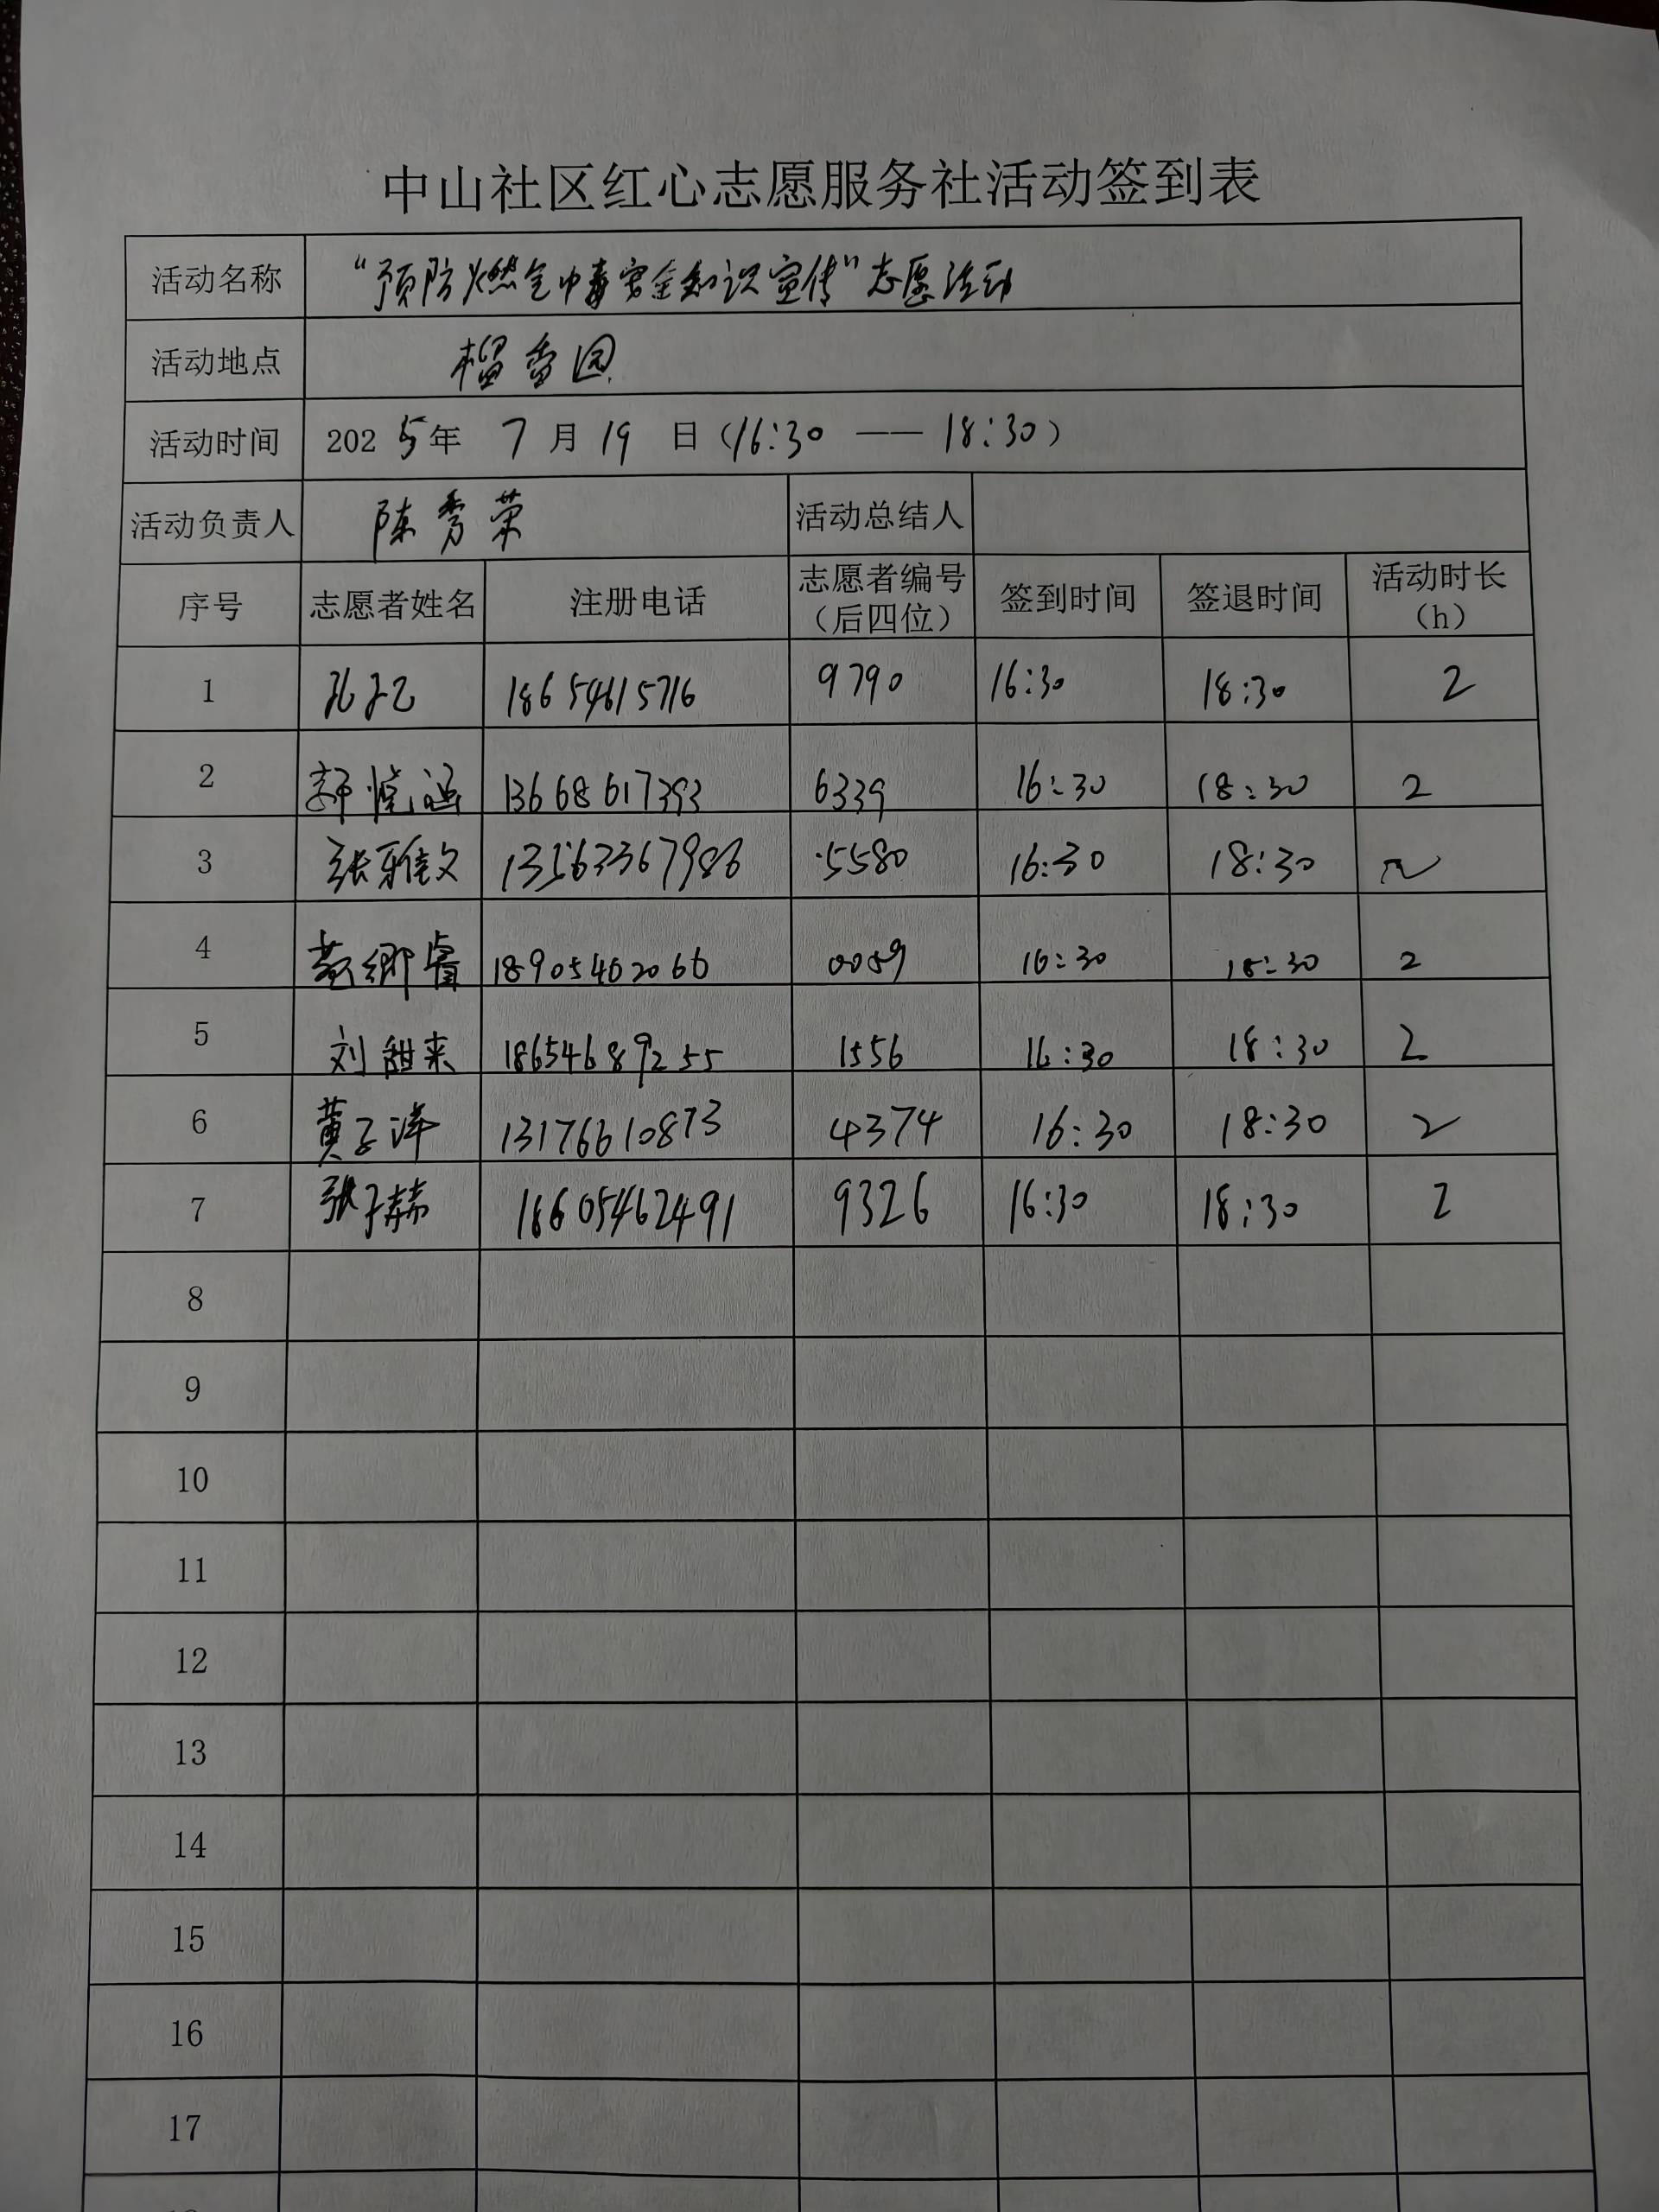 中山社区红心志愿服务社活动签到表
活动名称 “预防燃气中毒安全知识宣传”志愿活动
活动地点 榴香园
活动时间 2025年 7月19日(16:30 —— 18:30)
活动负责人 陈秀荣 活动总结人
序号 志愿者姓名 注册电话 志愿者编号(后四位) 签到时间 签退时间 活动时长(h)
1 孔子乙 18654615716 9790 16:30 18:30 2
2 郭悦涵 13668617393 6339 16:30 18:30 2
3 张雅文 13563367986 5580 16:30 18:30 2
4 黄卿睿 18905462066 0059 16:30 18:30 2
5 刘甜来 18654689255 1556 16:30 18:30 2
6 黄子洋 13176610873 4374 16:30 18:30 2
7 张子赫 18605462491 9326 16:30 18:30 2
8
9
10
11
12
13
14
15
16
17